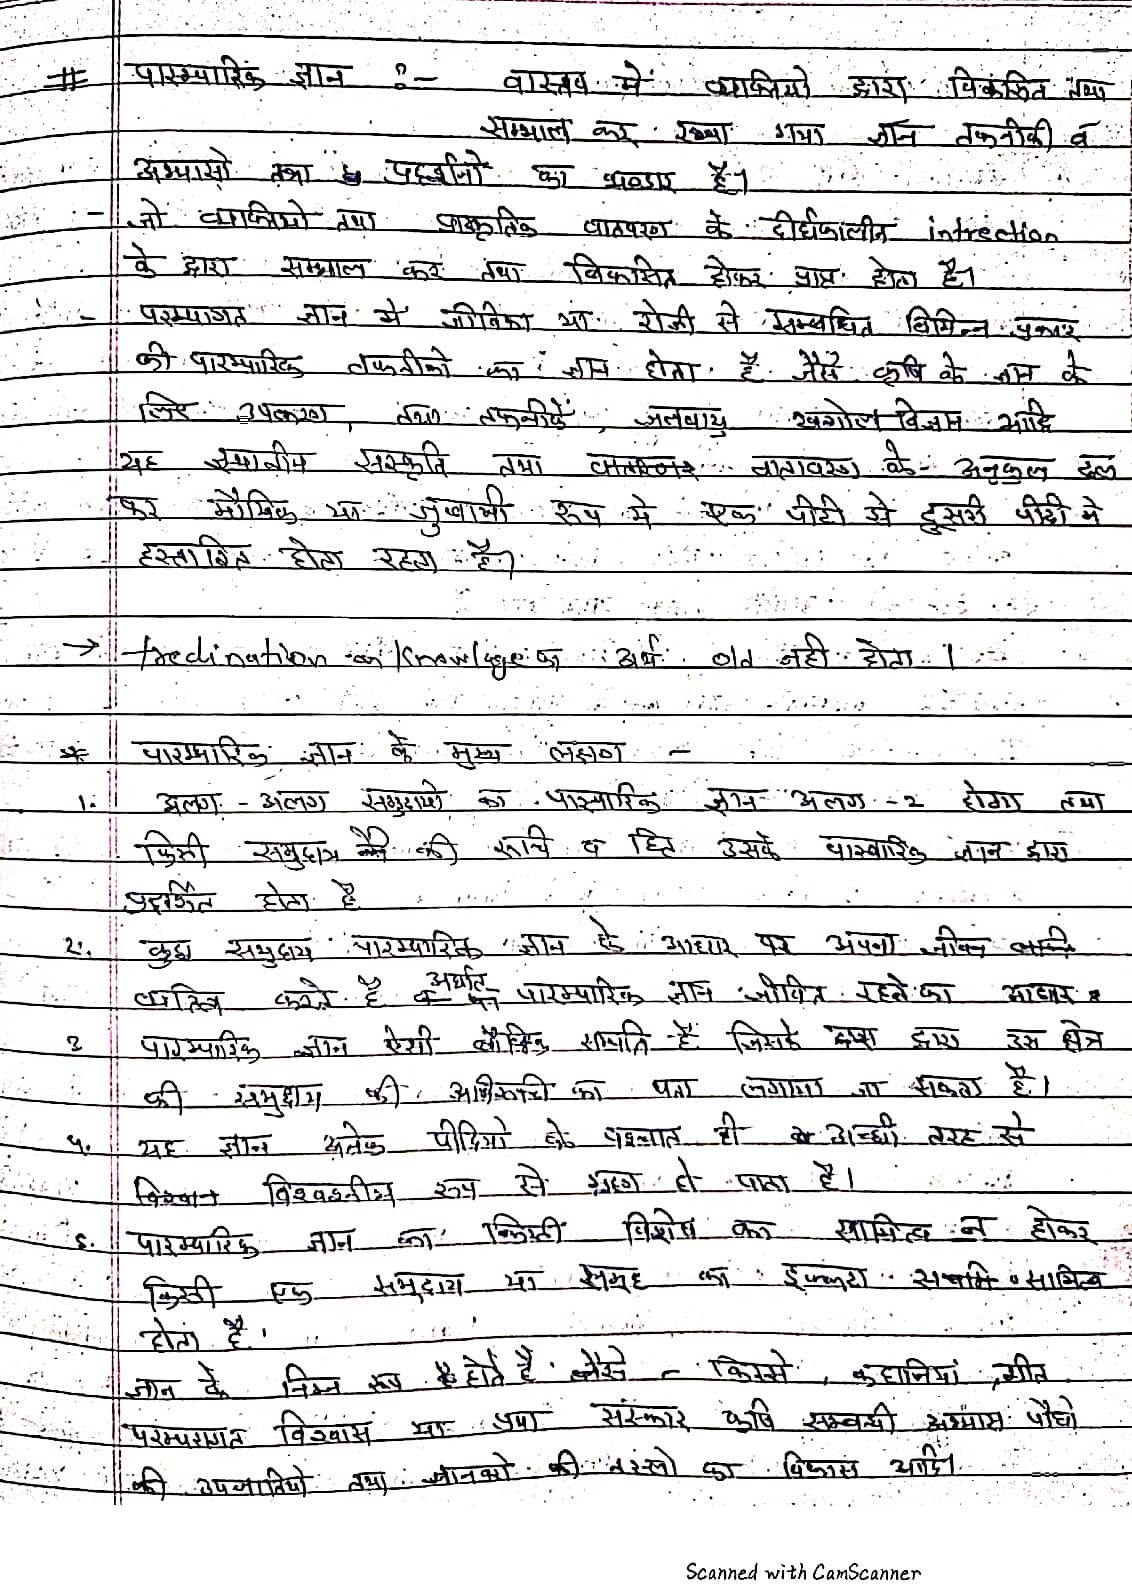 # पारम्पारिक ज्ञान :- वास्तव में व्यक्तियो द्वारा विकसित तथा
सम्भाल कर रखा गया ज्ञान तकनीकी व
अभ्यासो तथा प्रदर्शनो का भण्डार है।
- जो व्यक्तियो तथा प्राकृतिक वातवरण के दीर्घकालीन intrection
के द्वारा सम्भाल कर तथा विकसित होकर प्राप्त होता है।
- परम्पागत ज्ञान मे जीविका या रोजी से सम्बधित विभिन्न प्रकार
की पारम्पारिक तकनीको का ज्ञान होता है जैसे कृषि के ज्ञान के
लिए उपकरण, तथा तकनीकें, जलवायु खगोल विज्ञान आदि
यह स्थानीय संस्कृति तथा वातावरण के अनुकूल ढल
कर मौखिक या जुबानी रूप मे एक पीढी से दुसरी पीढी मे
हस्तांत्रित होता रहता है।
→ tredination knowlege का अर्थ old नही होता।
* पारम्पारिक ज्ञान के मुख्य लक्षण -
1. अलग - अलग समुदायो का पारम्पारिक ज्ञान अलग -2 होगा तथा
किसी समुदाय की रूचि व हित उसके पारम्पारिक ज्ञान द्वारा
प्रदर्शित होता है
2. कुछ समुदाय पारम्पारिक ज्ञान के आधार पर अपना जीवन
व्यतित करते है अर्थात पारम्पारिक ज्ञान जीवित रहने का आधार
3 पारम्पारिक ज्ञान ऐसी बौद्धिक सम्पति है जिसके द्वारा उस क्षेत्र
की समुदाय की का पता लगाया जा सकता है।
4. यह ज्ञान अनेक पीढियो के पश्चात ही अच्छी तरह से
विश्वसनीय रूप से ग्रहण हो पाता है।
5. पारम्पारिक ज्ञान का किसी विशेष का स्वामित्व न होकर
किसी एक समुदाय या समूह का इक्कठा स्वामित्व
होता है।
ज्ञान के निम्न रूप होते है जैसे - किस्से, कहानियां, गीत
परम्परागत विश्वास या प्रथा संस्कार कृषि सम्बन्धी अभ्यास पौधो
की उपजातियो तथा जानवरो की नस्लो का विकास आदि।
Scanned with CamScanner